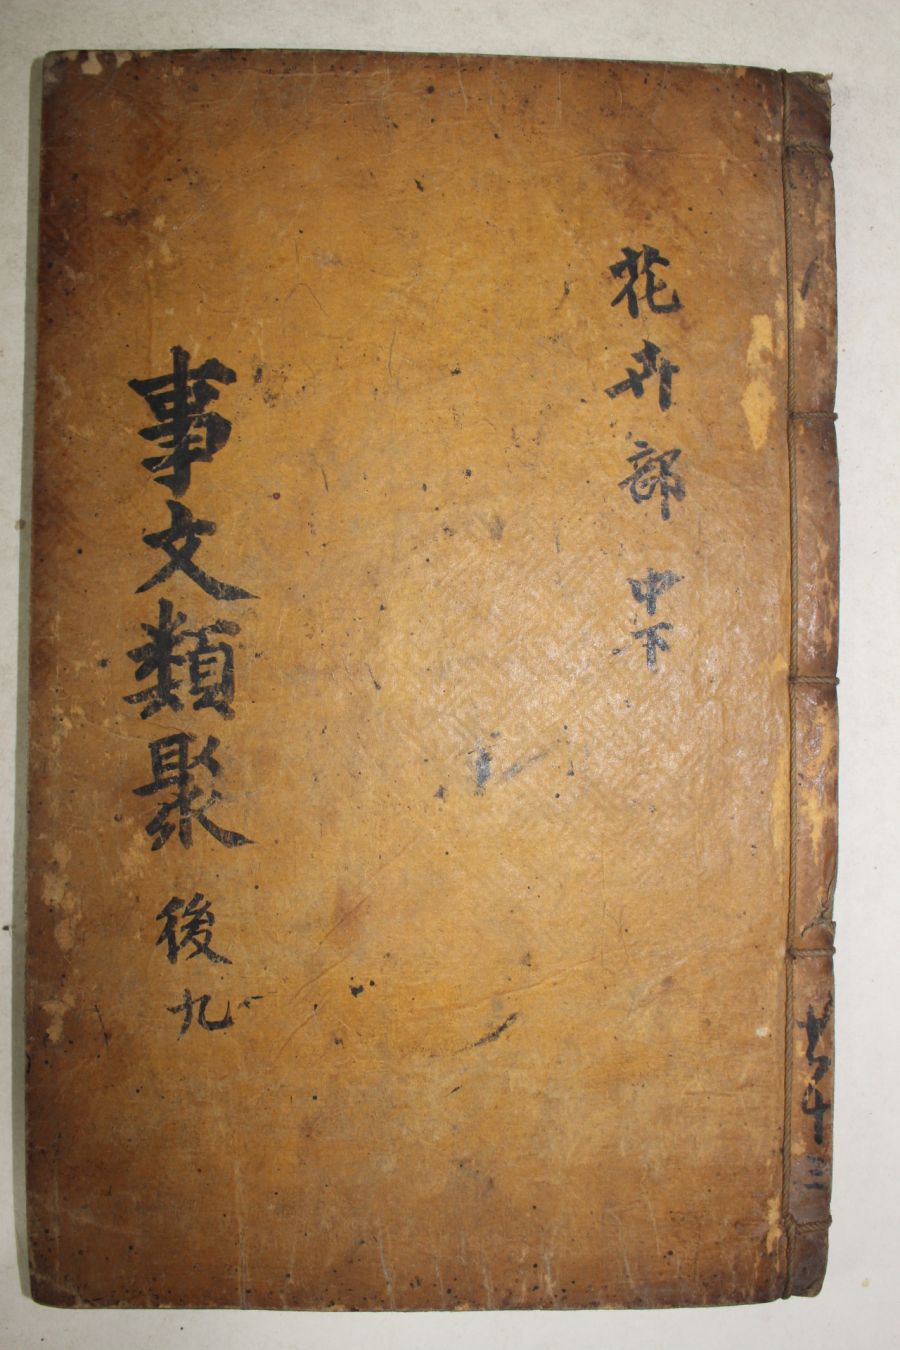 十三
花卉部 中下
事文類聚 後九